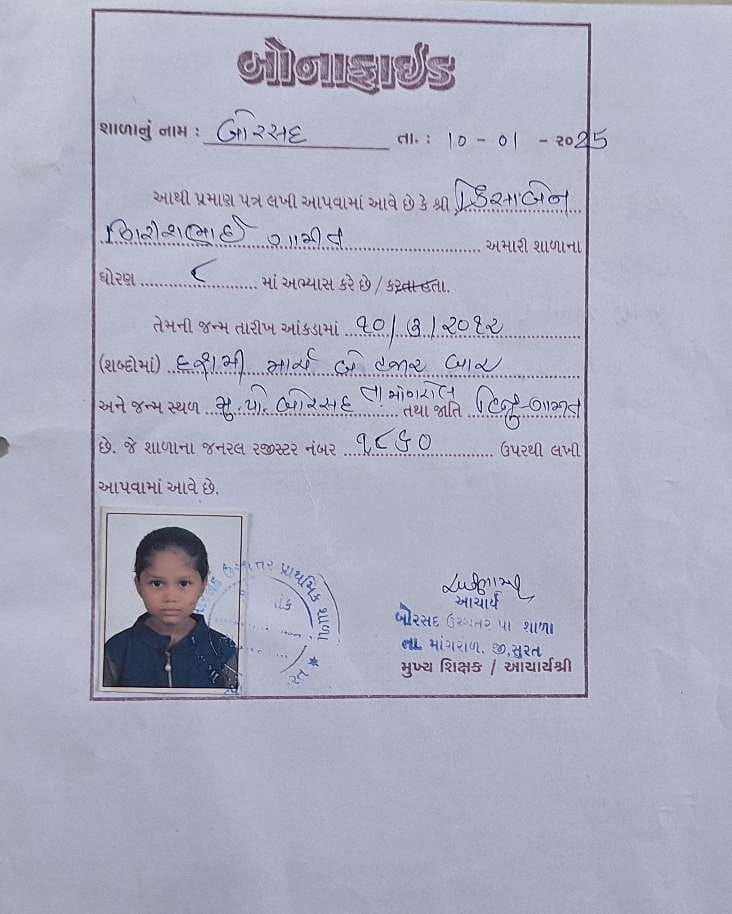 બોનાફાઈડ
શાળાનું નામ : બોરસદ તા. : 10 - 01 - ૨૦25
આથી પ્રમાણ પત્ર લખી આપવામાં આવે છે કે શ્રી ક્રિસાબેન
ગિરીશભાઈ ગામીત અમારી શાળાના
ધોરણ ૮ માં અભ્યાસ કરે છે / કરતા હતા.
તેમની જન્મ તારીખ આંકડામાં ૧૦/૩/૨૦૧૨
(શબ્દોમાં) દશમી માર્ચ બે હજાર બાર
અને જન્મ સ્થળ મુ.પો. બોરસદ તા માંગરોલ તથા જાતિ હિન્દુ-ગામીત
છે. જે શાળાના જનરલ રજીસ્ટર નંબર ૧૮૬૦ ઉપરથી લખી
આપવામાં આવે છે.
ઉચ્ચતર પ્રાથમિક શાળા
આચાર્ય
બોરસદ ઉચ્ચતર પ્રા શાળા
તા. માંગરોળ. જી. સુરત
મુખ્ય શિક્ષક / આચાર્યશ્રી